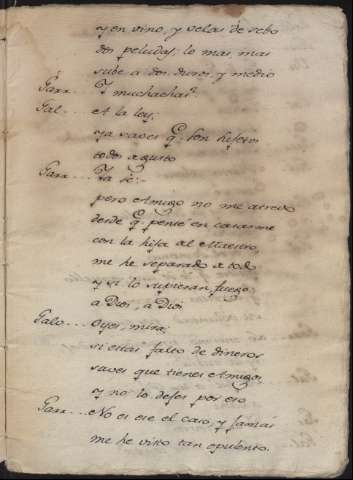 y en vino, y velas de sebo
dos peludos; lo mas, mas
sube a dos duros, y medio
Parr... Y muchachas?
Pal... A la ley;
ya saves q.e son
todos agusto
Parr... Ya se:-
pero Amigo no me atrevo
desde q.e pensé en casarme
con la hija al Maestro,
me he separado a todo
y si lo supieran, fuego;
a Dios, a Dios
Palo... Oyes, mira;
si estas falto de dineros
saves que tienes Amigos,
y no lo dejes por eso
Parr... No es ese el caso, y jamás
me he visto tan opulento.